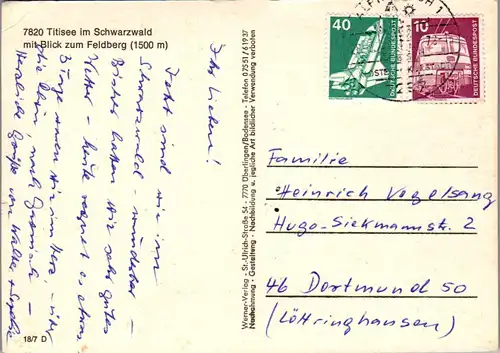 7820 Titisee im Schwarzwald
mit Blick zum Feldberg (1500 m)
Ihr Lieben!
Jetzt sind wir im
Schwarzwald - wunderbar -
Bisher hatten wir sehr gutes
Wetter - heute regnet es etwas
Herzliche Grüße von Walter +
18/7 D
Werner-Verlag - St.-Ulrich-Straße 54 - 7770 Überlingen/Bodensee - Telefon 07551/61937
Nachahmung - Gestaltung - Nachbildung u. jegliche Art bildlicher Verwendung verboten
40
DEUTSCHE BUNDESPOST
10
DEUTSCHE BUNDESPOST
Familie
Heinrich Vogelsang
Hugo-Siekmannstr. 2
46 Dortmund 50
(Löttringhausen)